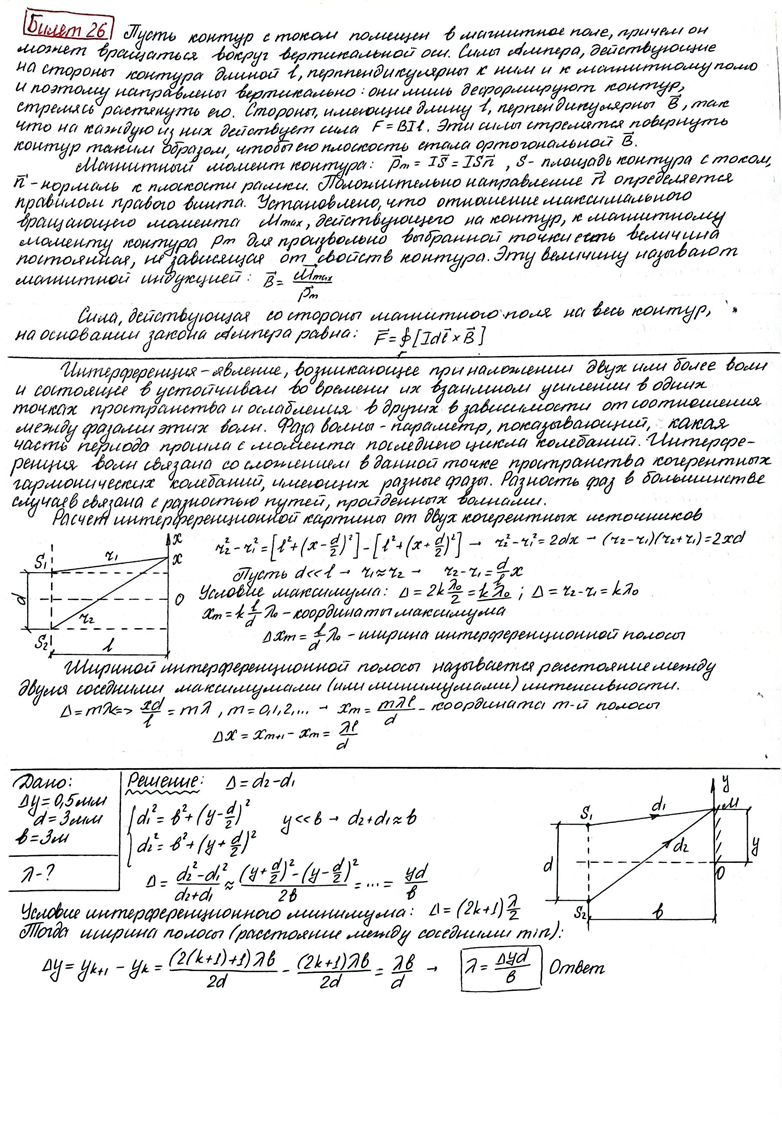 Билет 26 Пусть контур с током помещен в магнитное поле, причем он
может вращаться вокруг вертикальной оси. Силы Ампера, действующие
на стороны контура длиной l, перпендикулярны к ним и к магнитному полю
и поэтому направлены вертикально: они лишь деформируют контур,
стремясь растянуть его. Стороны, имеющие длину l, перпендикулярны B⃗, так
что на каждую из них действует сила F = BIl. Эти силы стремятся повернуть
контур таким образом, чтобы его плоскость стала ортогональной B⃗.
Магнитный момент контура: p⃗m = IS⃗ = ISn⃗, S - площадь контура с током,
n⃗ - нормаль к плоскости рамки. Положительно направление n⃗ определяется
правилом правого винта. Установлено, что отношение максимального
вращающего момента Mmax, действующего на контур, к магнитному
моменту контура pm для произвольно выбранной точки есть величина
постоянная, не зависящая от свойств контура. Эту величину называют
магнитной индукцией: B⃗ = M⃗max / p⃗m
Сила, действующая со стороны магнитного поля на весь контур,
на основании закона Ампера равна: F⃗ = ∮Г [Idl⃗ × B⃗]
Интерференция - явление, возникающее при наложении двух или более волн
и состоящее в устойчивом во времени их взаимном усилении в одних
точках пространства и ослабления в других в зависимости от соотношения
между фазами этих волн. Фаза волны - параметр, показывающий, какая
часть периода прошла с момента последнего цикла колебаний. Интерфе-
ренция волн связана со сложением в данной точке пространства когерентных
гармонических колебаний, имеющих разные фазы. Разность фаз в большинстве
случаев связана с разностью путей, пройденных волнами.
Расчет интерференционной картины от двух когерентных источников
S1 S2 d r1 r2 l x x O
r2² - r1² = [l² + (x - d/2)²] - [l² + (x + d/2)²] → r2² - r1² = 2dx → (r2 - r1)(r2 + r1) = 2xd
Пусть d << l → r1 ≈ r2 → r2 - r1 = d/l x
Условие максимума: Δ = 2k λ0/2 = kλ0 ; Δ = r2 - r1 = kλ0
xm = k l/d λ0 - координаты максимума
Δxm = l/d λ0 - ширина интерференционной полосы
Шириной интерференционной полосы называется расстояние между
двумя соседними максимумами (или минимумами) интенсивности.
Δ = mλ <=> xd/l = mλ, m = 0,1,2,... → xm = mλl/d - координата m-й полосы
Δx = xm+1 - xm = λl/d
Дано:
Δy = 0,5мм
d = 3мм
b = 3м
λ - ?
Решение: Δ = d2 - d1
{ d1² = b² + (y - d/2)²
{ d2² = b² + (y + d/2)²
y << b → d2 + d1 ≈ b
Δ = (d2² - d1²)/(d2 + d1) ≈ ((y + d/2)² - (y - d/2)²)/2b = ... = yd/b
S1 S2 d d1 d2 b y M y O
Условие интерференционного минимума: Δ = (2k+1) λ/2
Тогда ширина полосы (расстояние между соседними min):
Δy = yk+1 - yk = (2(k+1)+1)λb/2d - (2k+1)λb/2d = λb/d → λ = Δyd/b Ответ